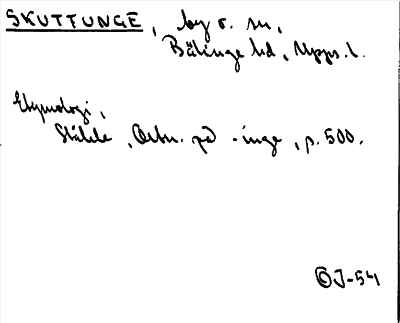 SKUTTUNGE, by o. sn,
Bälinge hd, Upps. l.
Etymologi,
Ståhle, Ortn. på -inge, p. 500.
OJ-54